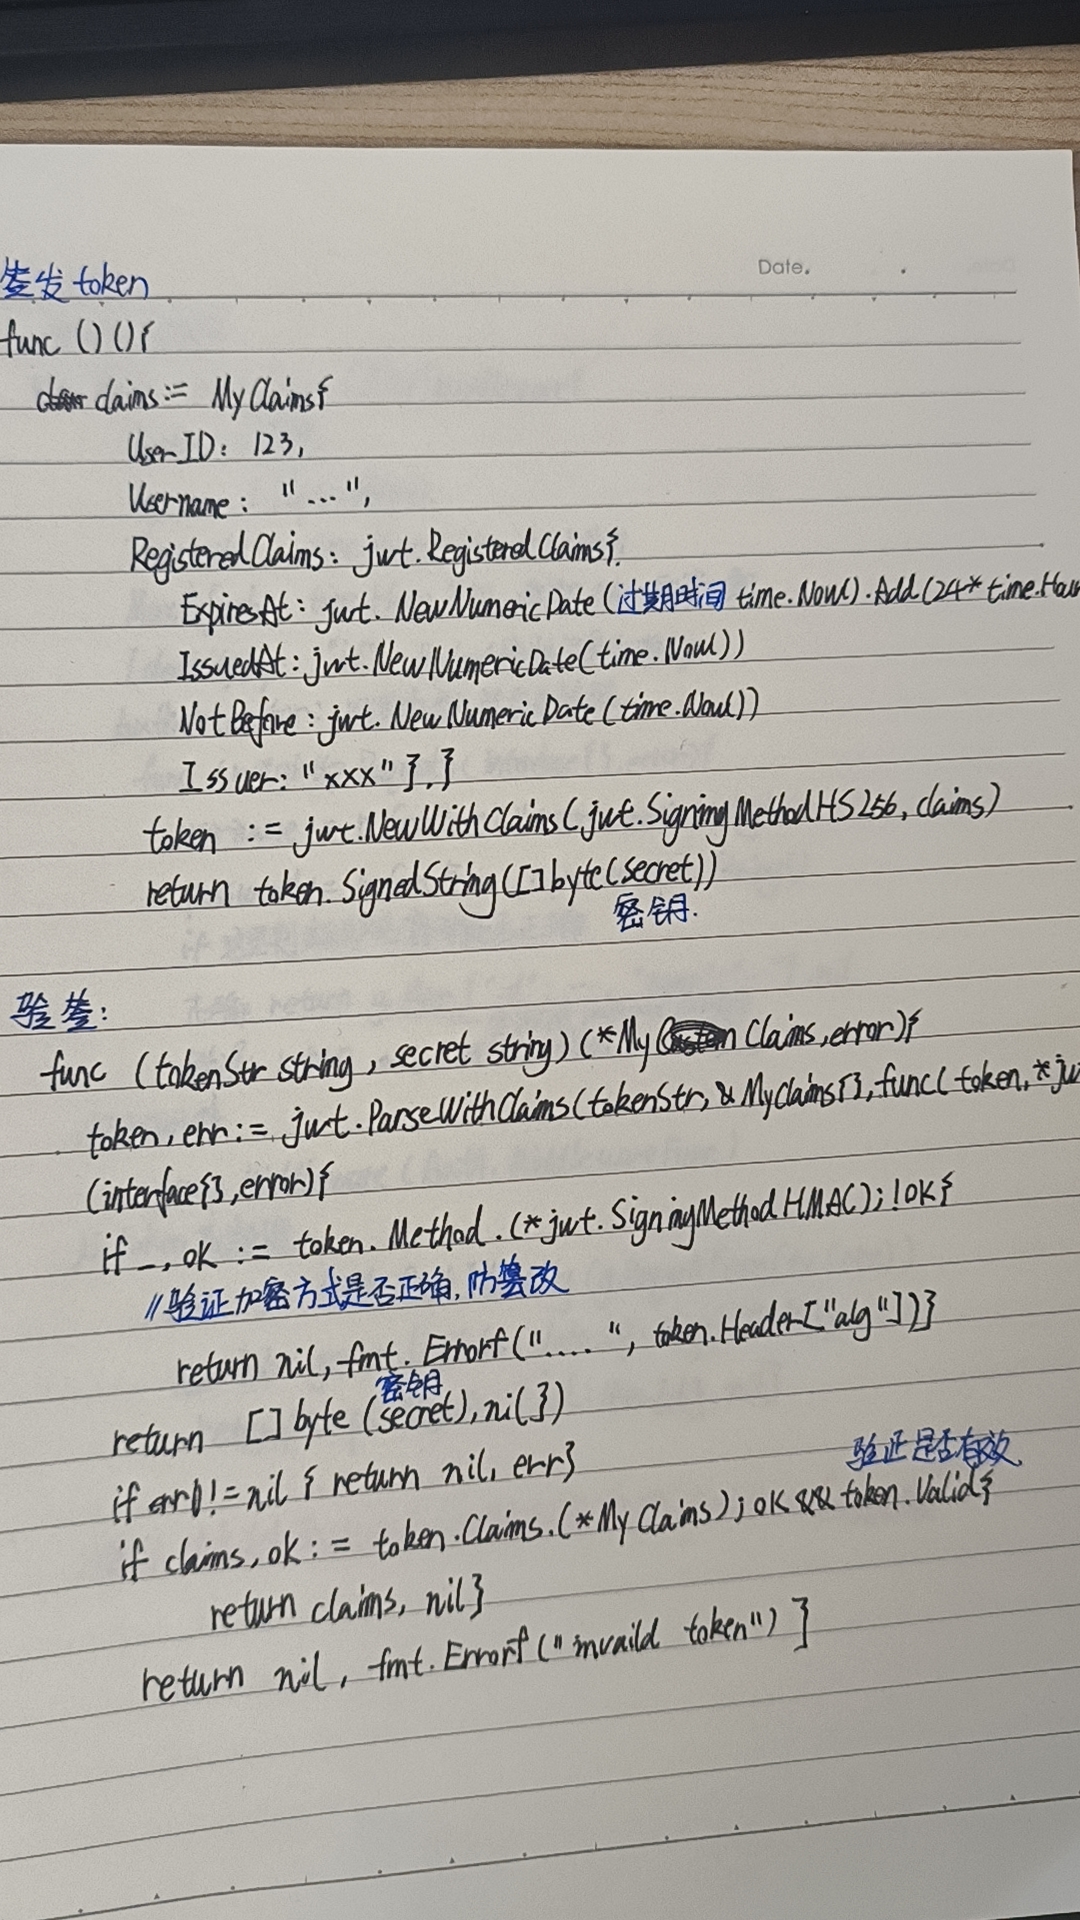 Date.
签发 token
func ()(){
claims := MyClaims{
UserID: 123,
Username: "...",
RegisteredClaims: jwt.RegisteredClaims{
ExpiresAt: jwt.NewNumericDate(过期时间 time.Now().Add(24*time.Hour
IssuedAt: jwt.NewNumericDate(time.Now())
NotBefore: jwt.NewNumericDate(time.Now())
Issuer: "xxx"},}
token := jwt.NewWithClaims(jwt.SigningMethodHS256, claims)
return token.SignedString([]byte(secret))
密钥.
验签:
func (tokenStr string, secret string)(*My Claims,error){
token,err:= jwt.ParseWithClaims(tokenStr, &MyClaims{},func(token,*jw
(interface{},error){
if _,ok := token.Method.(*jwt.SigningMethodHMAC);!OK{
//验证加密方式是否正确,防篡改
return nil,fmt.Errorf("....", token.Header["alg"])}
密钥
return []byte(secret),nil})
验证是否有效
if err!=nil { return nil, err}
if claims,ok:= token.Claims.(*MyClaims);OK && token.Valid{
return claims, nil}
return nil, fmt.Errorf("invaild token")}